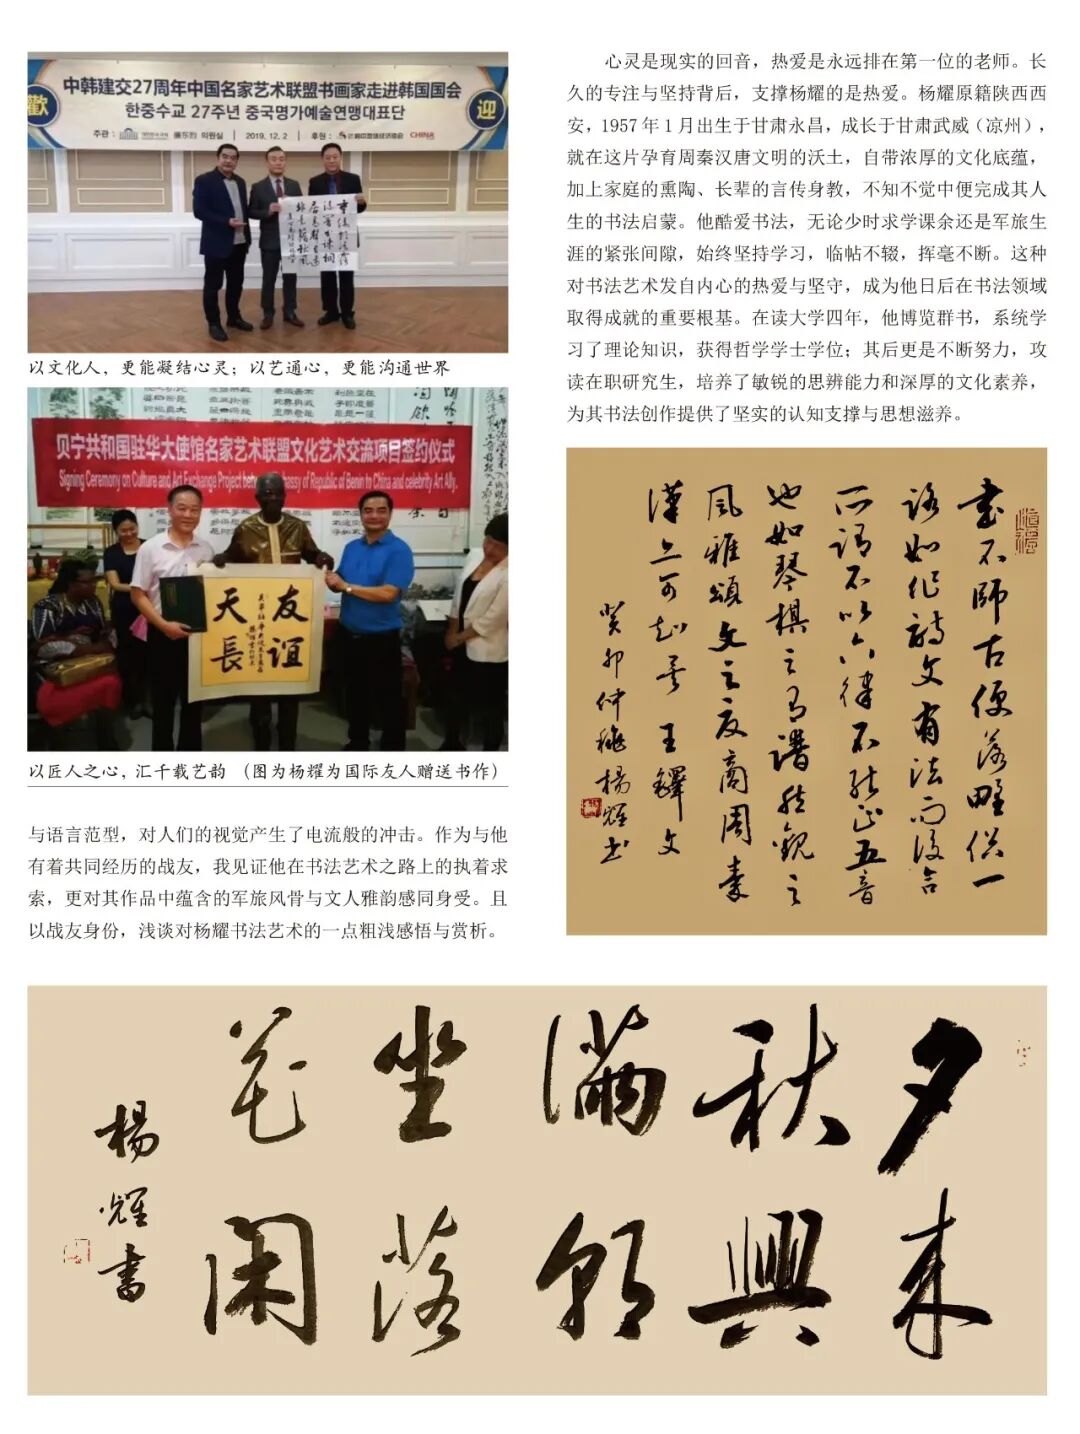 中韩建交27周年中国名家艺术联盟书画家走进韩国国会
한중수교 27주년 중국명가예술연맹대표단
歡
迎
주관 :
의원실
2019. 12. 2
후원 :
CHINA
以文化人，更能凝结心灵；以艺通心，更能沟通世界
贝宁共和国驻华大使馆名家艺术联盟文化艺术交流项目签约仪式
Signing Ceremony on Culture and Art Exchange Project
of Republic of Benin to China and celebrity Art Ally.
友誼
天長
以匠人之心，汇千载艺韵 （图为杨耀为国际友人赠送书作）
与语言范型，对人们的视觉产生了电流般的冲击。作为与他
有着共同经历的战友，我见证他在书法艺术之路上的执着求
索，更对其作品中蕴含的军旅风骨与文人雅韵感同身受。且
以战友身份，浅谈对杨耀书法艺术的一点粗浅感悟与赏析。
心灵是现实的回音，热爱是永远排在第一位的老师。长
久的专注与坚持背后，支撑杨耀的是热爱。杨耀原籍陕西西
安，1957 年 1 月出生于甘肃永昌，成长于甘肃武威（凉州），
就在这片孕育周秦汉唐文明的沃土，自带浓厚的文化底蕴，
加上家庭的熏陶、长辈的言传身教，不知不觉中便完成其人
生的书法启蒙。他酷爱书法，无论少时求学课余还是军旅生
涯的紧张间隙，始终坚持学习，临帖不辍，挥毫不断。这种
对书法艺术发自内心的热爱与坚守，成为他日后在书法领域
取得成就的重要根基。在读大学四年，他博览群书，系统学
习了理论知识，获得哲学学士学位；其后更是不断努力，攻
读在职研究生，培养了敏锐的思辨能力和深厚的文化素养，
为其书法创作提供了坚实的认知支撑与思想滋养。
書不師古便落野俗一
路如作詩文有法而後合
所謂不以六律不能正五音
也如琴棋之有譜然觀之
風雅頌文之夏商周秦
漢亦可知矣 王鐸文
癸卯仲穐楊耀书
夕来
秋興
滿朝
坐落
花閑
楊耀書